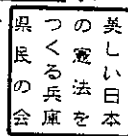 美しい日本
の憲法を
つくる兵庫
県民の会